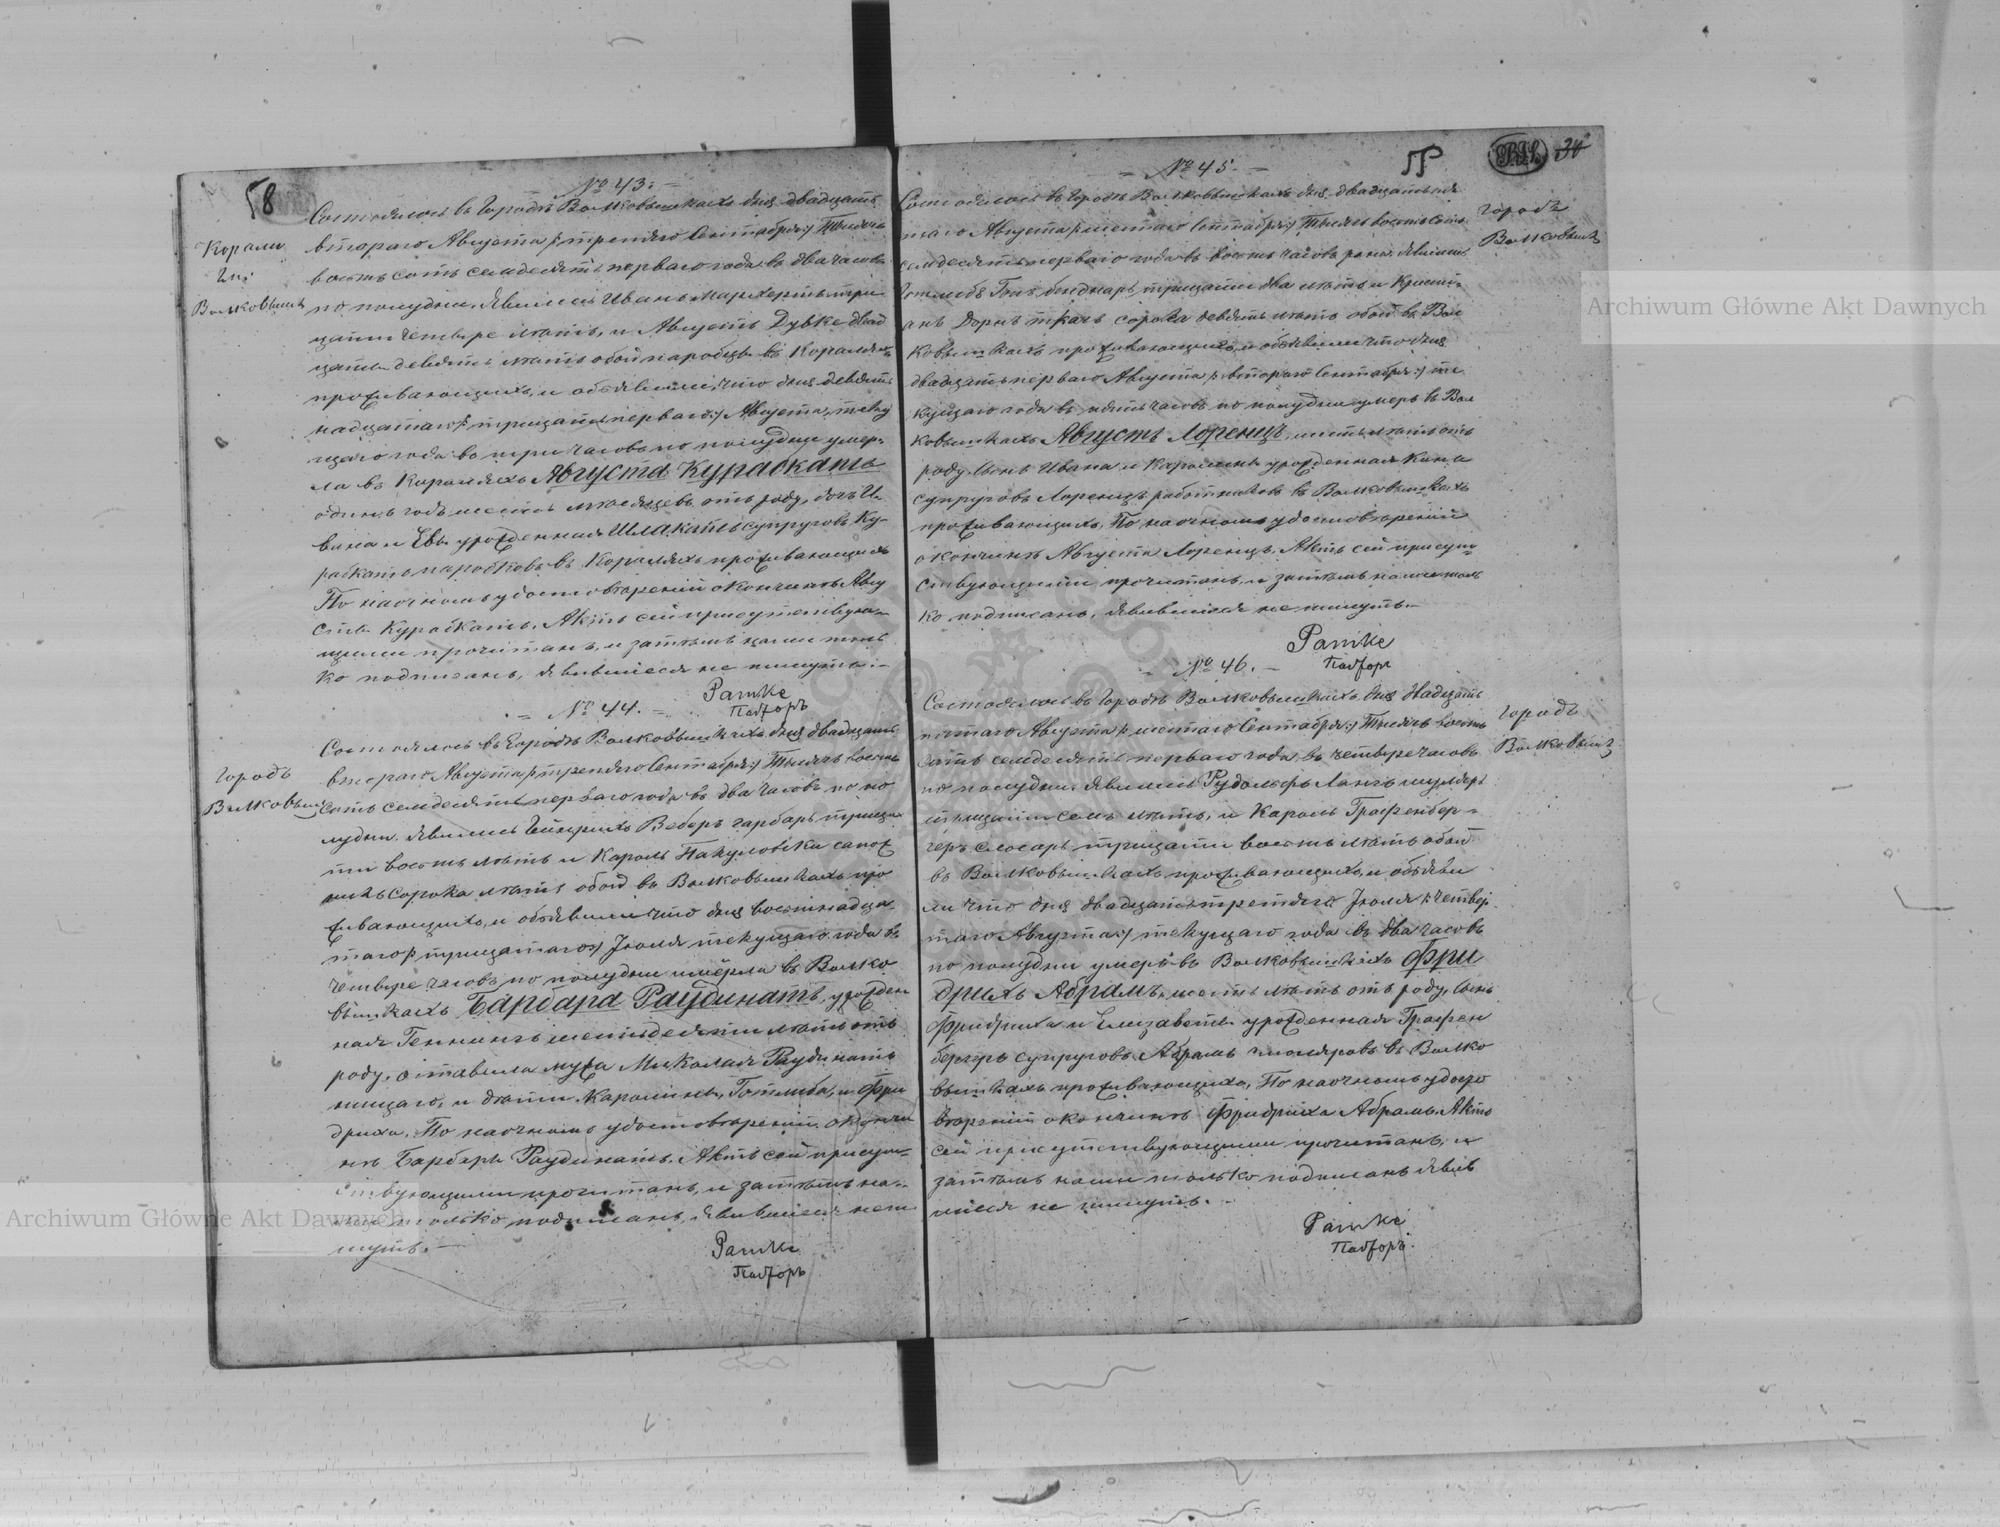 58
№ 43.
Корали
Волковышк
Состоялось въ Городѣ Волковышкахъ дня двадцать
втораго Августа /:третяго Сентября:/ Тысяча
восемь сотъ семдесятъ перваго года въ два часа
по полудни. Явились Иванъ Мархертъ три
цати четыре лѣтъ, и Августъ Дубке двад
цать девять лѣтъ обой паробцы въ Кораляхъ
проживающихъ, и объявили, что дня девять
надцатаго /:тридцать перваго:/ Августа, теку
щаго года въ три часовъ по полудни умер-
ла въ Кораляхъ Августа Курапкатъ
одинъ годъ шесть мѣсяцевъ отъ роду, дочь И-
вана и Евы урожденная Шлакатъ супруговъ Ку-
рапкатъ паробковъ въ Кораляхъ проживающихъ
По наочномъ удостовѣреніи о кончинѣ Авгу
сты Курапкатъ. Актъ сей присутствую-
щими прочитанъ, и затѣмъ нами толь
ко подписанъ, явившіеся не пишутъ.
Ратке
Пасторъ
№ 44.
Городъ
Волковышк
Состоялось въ Городѣ Волковышкахъ дня двадцать
втораго Августа /:третяго Сентября:/ Тысяча восемь
сотъ семдесятъ перваго года въ два часовъ по по
лудни. Явились Гейнрихъ Веберъ гарбарь тридца
ти восемь лѣтъ и Кароль Пакуловски сапож
никъ сорока лѣтъ обой въ Волковышкахъ про
живающихъ, и объявили что дня восемнадца
таго /:тридцатаго:/ Іюля текущаго года въ
четыре часовъ по полудни умерла въ Волко
вышкахъ Барбара Раудинатъ, урожден
ная Геннингъ шестьдесятъ лѣтъ отъ
роду, оставила мужа Миколая Раудинатъ
нищаго, и дѣти Каролина, Готлиба, и Фри
дриха. По наочномъ удостовѣреніи о кончи
нѣ Барбары Раудинатъ. Актъ сей присут-
ствующими прочитанъ, и затѣмъ на-
ми только подписанъ, явившіеся не пи
шутъ.
Ратке
Пасторъ
№ 45.
Городъ
Волковышк
Состоялось въ Городѣ Волковышкахъ дня двадцать пя
таго Августа /:шестаго Сентября:/ Тысяча восемь сотъ
семдесятъ перваго года въ восемь часовъ рана. Явились
Готлибъ Гопъ бендиарь тридцати два лѣтъ и Кристи-
анъ Дорнъ ткачь сорока девять лѣтъ обой въ Вол
ковышкахъ проживающихъ, и объявили что дня
двадцать перваго Августа /:втораго Сентября:/ те
кущаго года въ пять часовъ по полудни умеръ въ Вол
ковышкахъ Августъ Лоренцъ, шесть лѣтъ отъ
роду, сынъ Ивана и Каролины урожденная
супруговъ Лоренцъ работниковъ въ Волковышкахъ
проживающихъ, По наочномъ удостовѣреніи
о кончинѣ Августа Лоренцъ. Актъ сей присут
ствующими прочитанъ, и затѣмъ нами толь
ко подписанъ, явившіеся не пишутъ.
Ратке
Пасторъ
№ 46.
Городъ
Волковышк
Состоялось въ Городѣ Волковышкахъ дня двадцать
пятаго Августа /:шестаго Сентября:/ Тысяча восемь
сотъ семдесятъ перваго года, въ четыре часовъ
по полудни. Явились Рудольфъ Лангъ
тридцати семь лѣтъ, и Кароль Графенбер-
геръ слюсарь тридцати восемь лѣтъ обой
въ Волковышкахъ проживающихъ, и объяви
ли что дня двадцать третяго Іюля /:четвер
таго Августа:/ текущаго года въ два часовъ
по полудни умеръ въ Волковышкахъ Фри
дрихъ Абрамъ, шесть лѣтъ отъ роду, сынъ
Фридриха и Елизаветы урожденная Графен
бергеръ супруговъ Абрамъ столяровъ въ Волко
вышкахъ проживающихъ, По наочномъ удосто
вѣреніи о кончинѣ Фридриха Абрамъ. Актъ
сей присутствующими прочитанъ, и
затѣмъ нами только подписанъ явив
шіеся не пишутъ.
Ратке
Пасторъ
Archiwum Główne Akt Dawnych
Archiwum Główne Akt Dawnych